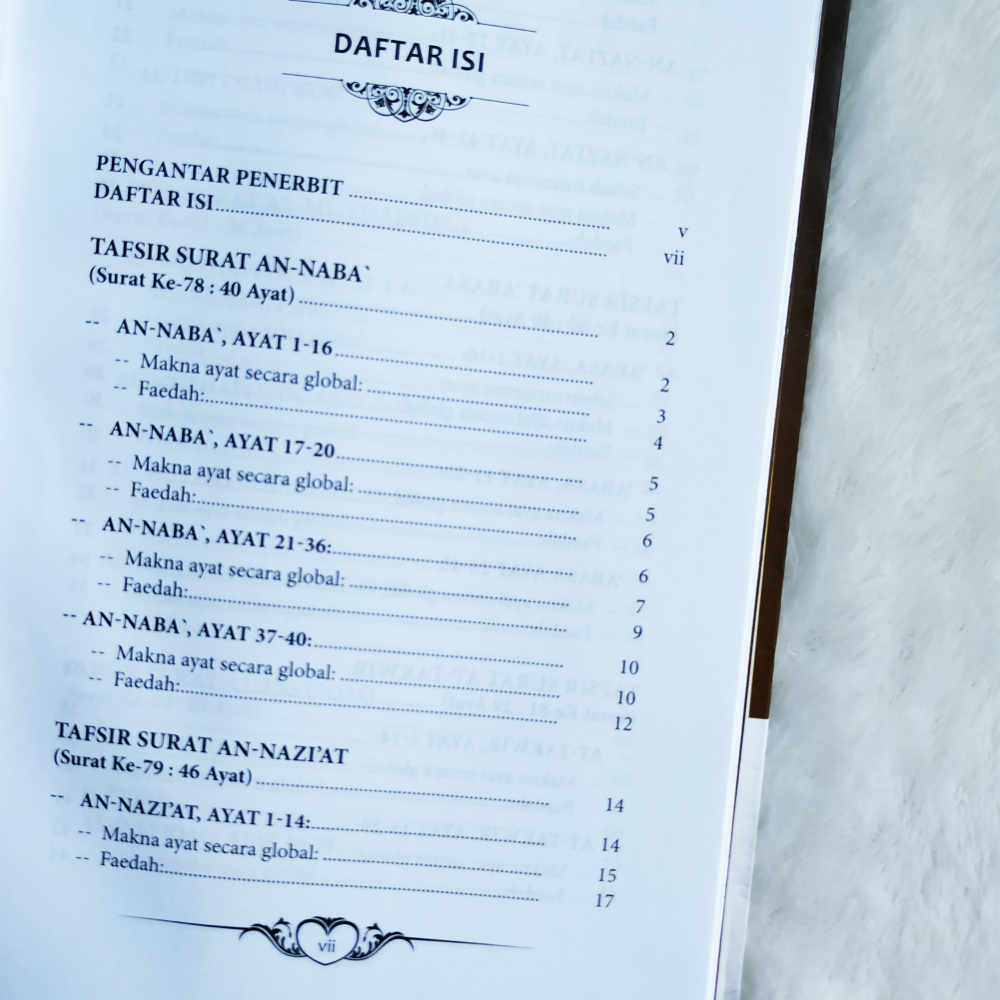 DAFTAR ISI
PENGANTAR PENERBIT ........ v
DAFTAR ISI ........ vii
TAFSIR SURAT AN-NABA`
(Surat Ke-78 : 40 Ayat) ........ 2
-- AN-NABA`, AYAT 1-16 ........ 2
-- Makna ayat secara global: ........ 3
-- Faedah: ........ 4
-- AN-NABA`, AYAT 17-20 ........ 5
-- Makna ayat secara global: ........ 5
-- Faedah: ........ 6
-- AN-NABA`, AYAT 21-36: ........ 6
-- Makna ayat secara global: ........ 7
-- Faedah: ........ 9
-- AN-NABA`, AYAT 37-40: ........ 10
-- Makna ayat secara global: ........ 10
-- Faedah: ........ 12
TAFSIR SURAT AN-NAZI’AT
(Surat Ke-79 : 46 Ayat) ........ 14
-- AN-NAZI’AT, AYAT 1-14: ........ 14
-- Makna ayat secara global: ........ 15
-- Faedah: ........ 17
vii